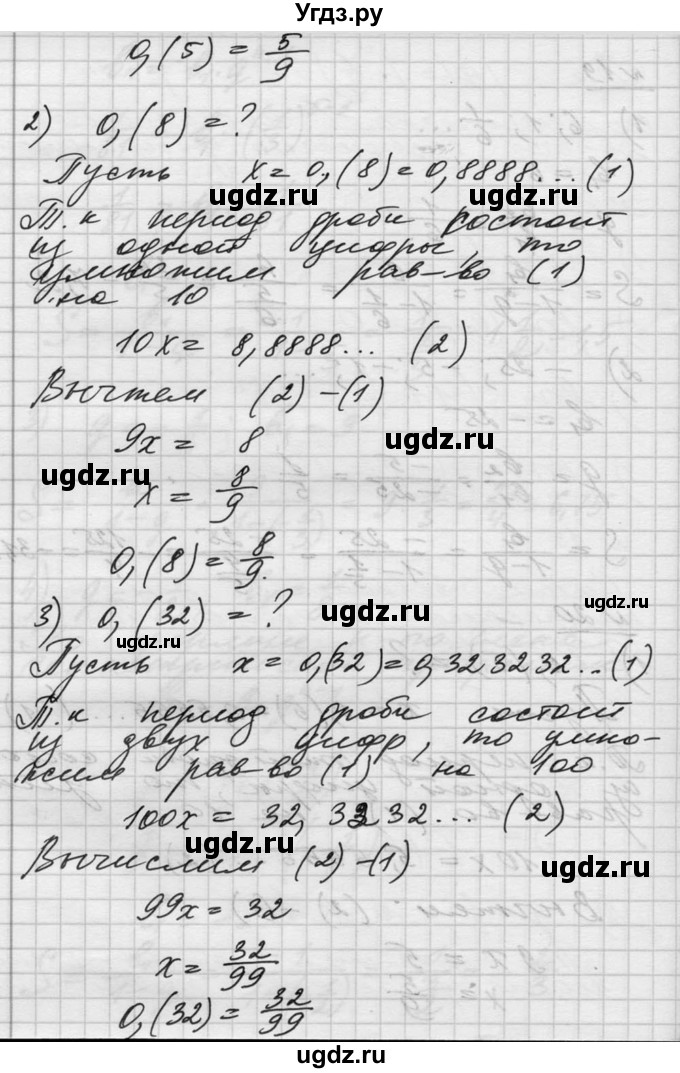 Угдз.ру
0,(5) = 5/9
2) 0,(8) = ?
Пусть x = 0,(8) = 0,8888... (1)
ugdz.ru ugdz.ru
Т.к период дроби состоит
из одной цифры, то
умножим рав-во (1)
на 10
ugdz.ru ugdz.ru
10x = 8,8888... (2)
Вычтем (2) - (1)
9x = 8
ugdz.ru
ugdz.ru
x = 8/9
0,(8) = 8/9.
ugdz.ru
3) 0,(32) = ?
ugdz.ru
ugdz.ru
Пусть x = 0,(32) = 0,323232... (1)
Т.к период дроби состоит
из двух цифр, то умно-
жим рав-во (1) на 100
ugdz.ru ugdz.ru
100x = 32,3232... (2)
ugdz.ru
Вычислим (2) - (1)
ugdz.ru
99x = 32
x = 32/99
0,(32) = 32/99
ugdz.ru